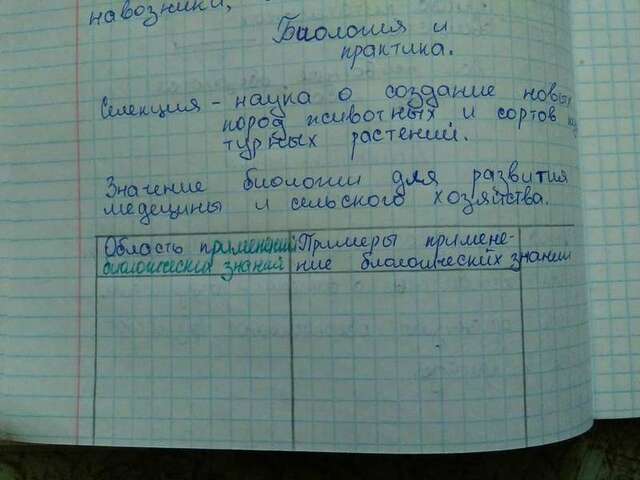 навозники,
Биология и
практика.
Селекция - наука о создание новых
пород животных и сортов куль
турных растений.
Значение биологии для развития
медецины и сельского хозяйства.
Область применений
биологических знаний
Примеры примене-
ние биологических знаний